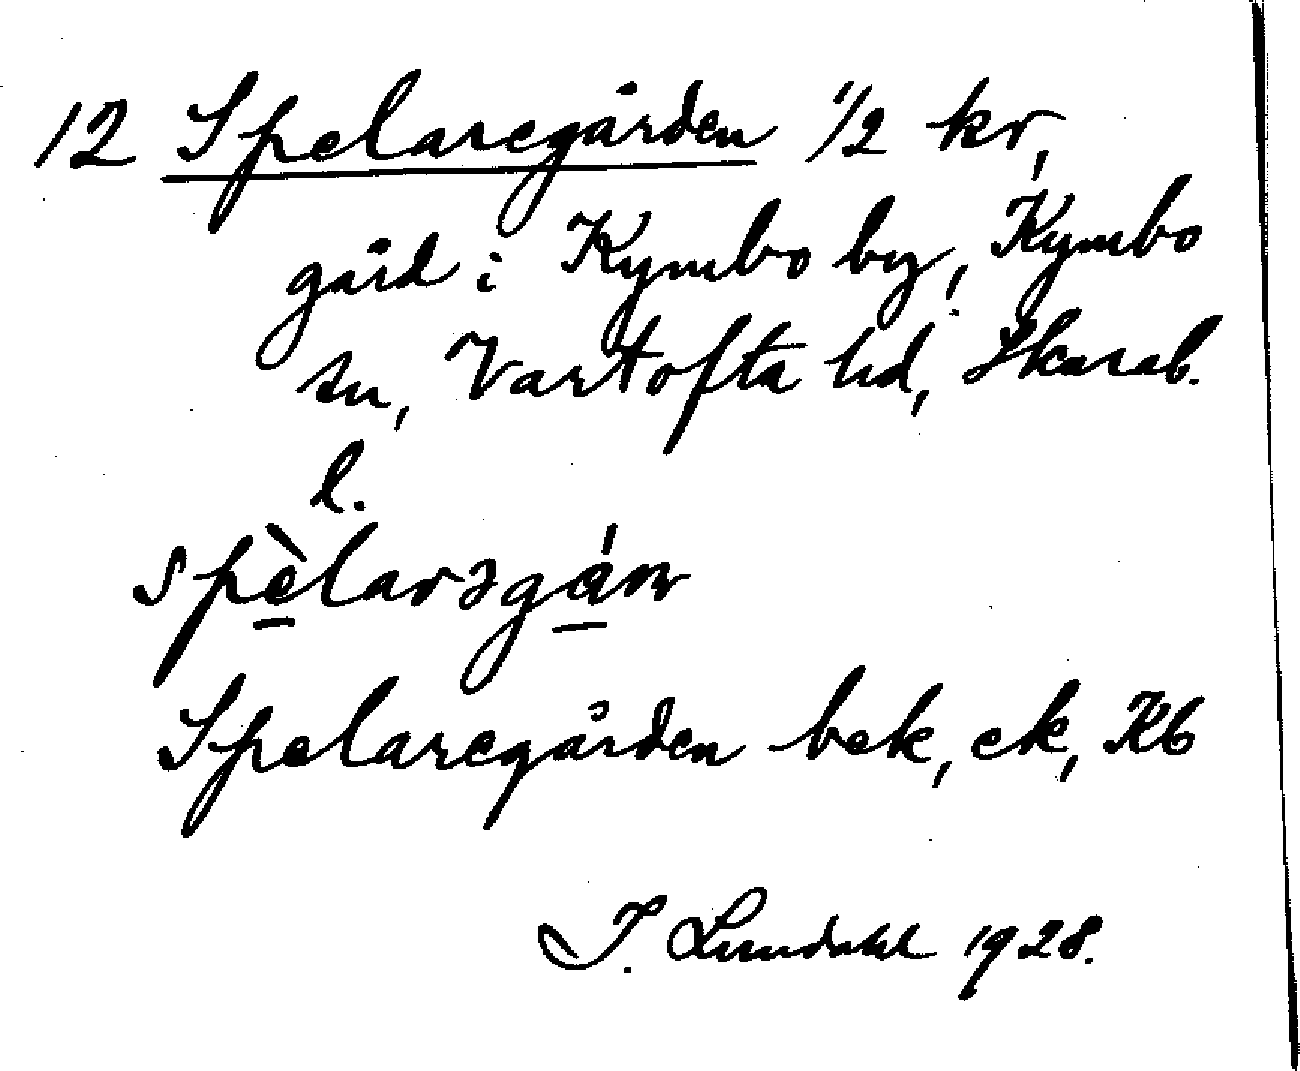 12 Spelaregården 1/2 kr,
gård i Kymbo by, Kymbo
sn, Vartofta hd, Skarab.
l.
spèlarəgáɳ
Spelaregården bek, ek, Kb
I. Lundahl 1928.